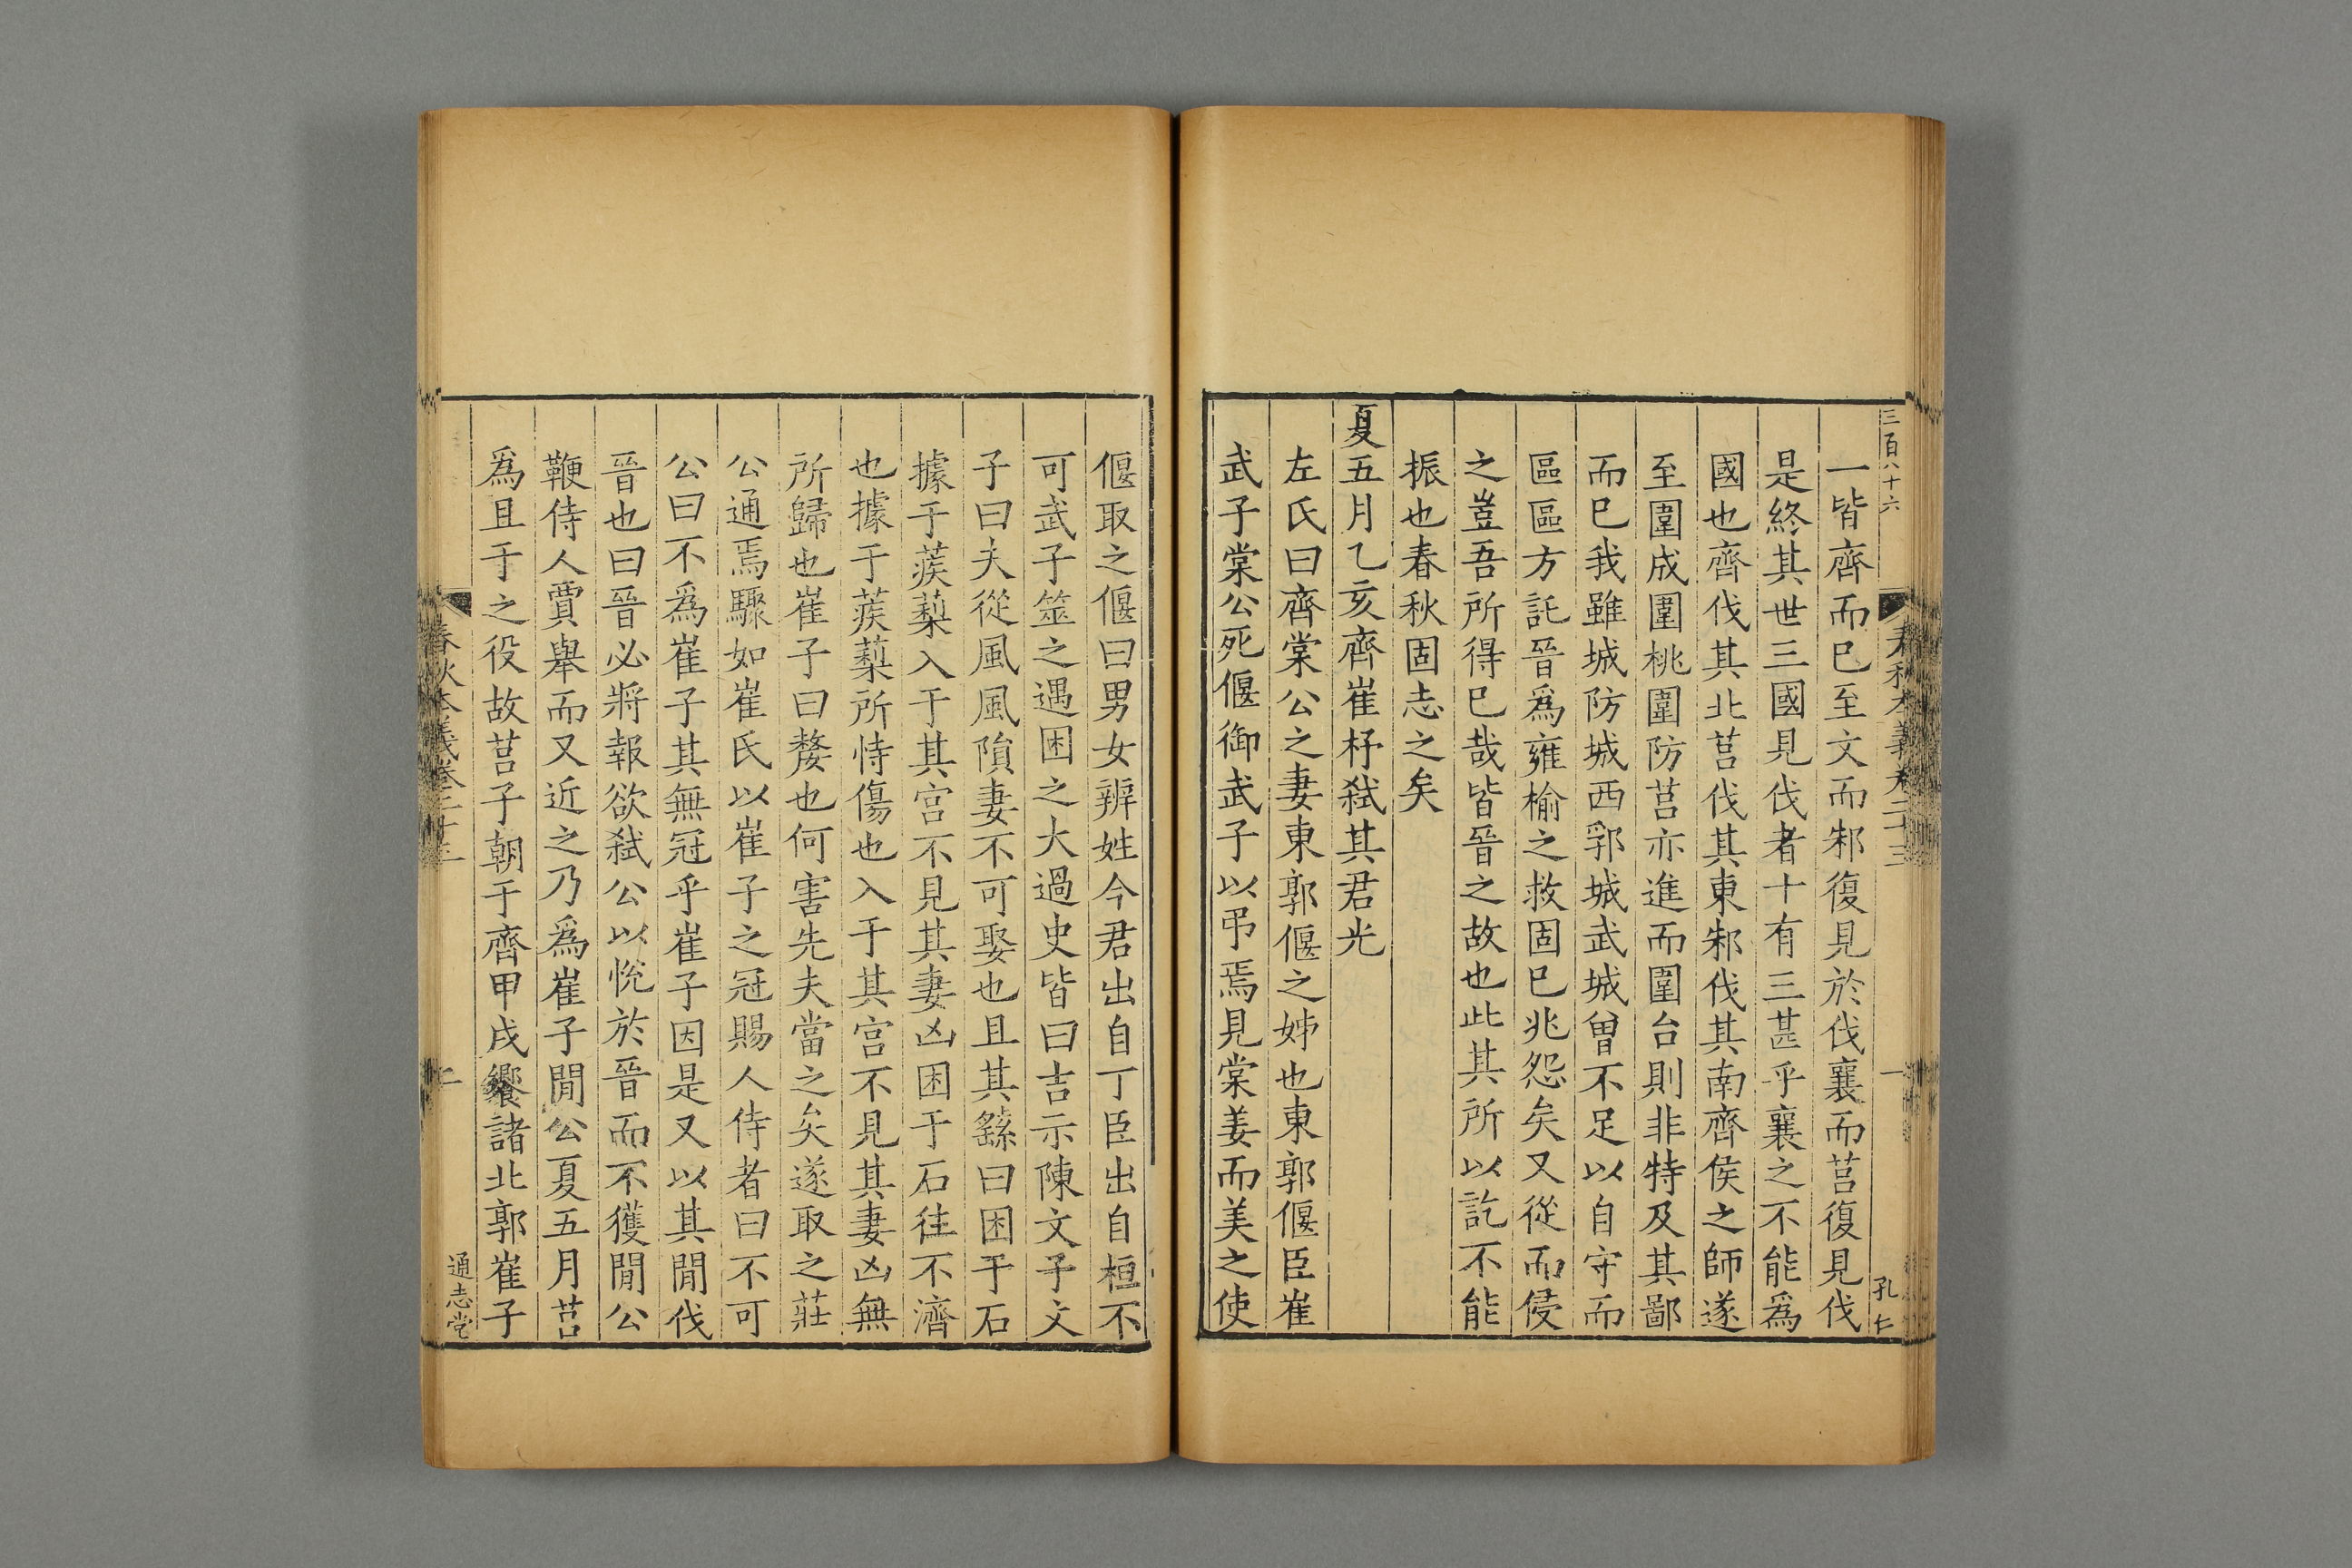 三百八十六
春秋本義卷二十三
一
孔仁
一皆齊而已至文而邾復見於伐襄而莒復見伐
是終其世三國見伐者十有三甚乎襄之不能爲
國也齊伐其北莒伐其東邾伐其南齊侯之師遂
至圍成圍桃圍防莒亦進而圍台則非特及其鄙
而已我雖城防城西郛城武城曾不足以自守而
區區方託晉爲雍榆之救固已兆怨矣又從而侵
之豈吾所得已哉皆晉之故也此其所以訖不能
振也春秋固志之矣
夏五月乙亥齊崔杼弑其君光
左氏曰齊棠公之妻東郭偃之姊也東郭偃臣崔
武子棠公死偃御武子以弔焉見棠姜而美之使
偃取之偃曰男女辨姓今君出自丁臣出自桓不
可武子筮之遇困之大過史皆曰吉示陳文子文
子曰夫從風風隕妻不可娶也且其繇曰困于石
據于蒺蔾入于其宮不見其妻凶困于石往不濟
也據于蒺蔾所恃傷也入于其宮不見其妻凶無
所歸也崔子曰嫠也何害先夫當之矣遂取之莊
公通焉驟如崔氏以崔子之冠賜人侍者曰不可
公曰不爲崔子其無冠乎崔子因是又以其閒伐
晉也曰晉必將報欲弑公以悅於晉而不獲閒公
鞭侍人賈舉而又近之乃爲崔子閒公夏五月莒
爲且于之役故莒子朝于齊甲戌饗諸北郭崔子
春秋本義卷二十三
二
通志堂